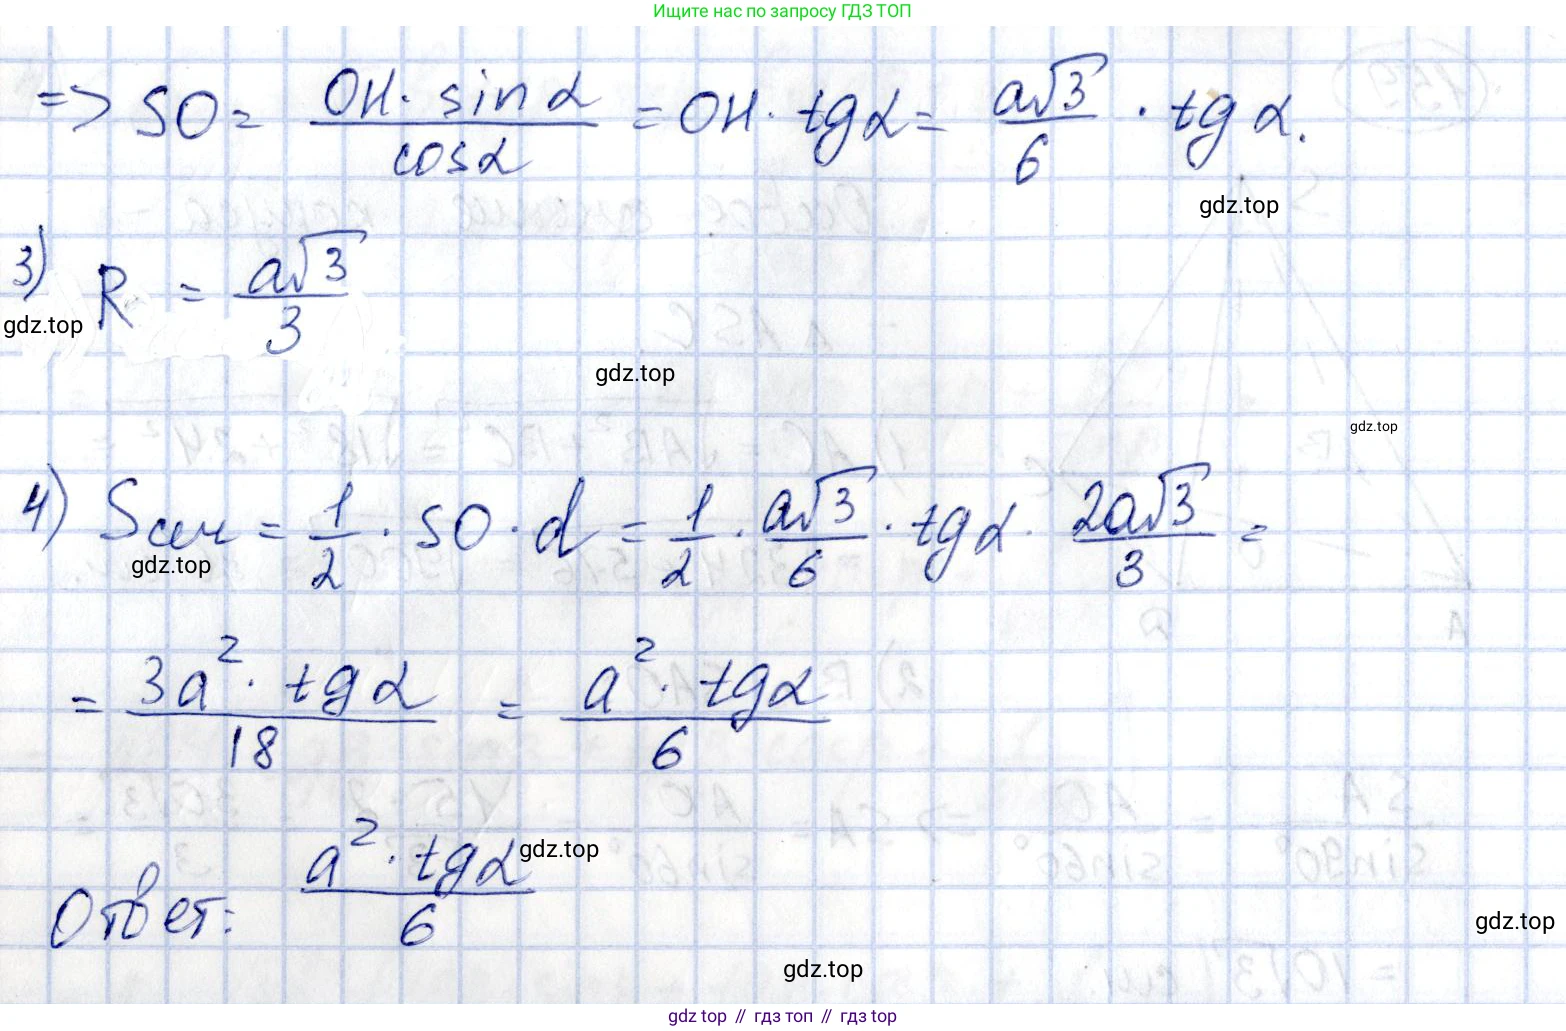 Ищите нас по запросу ГДЗ ТОП
=> SO = OH · sin α / cos α = OH · tg α = a√3 / 6 · tg α.
gdz.top
3) R = a√3 / 3
gdz.top
gdz.top
gdz.top
4) Sсеч = 1/2 · SO · d = 1/2 · a√3 / 6 · tg α · 2a√3 / 3 =
gdz.top
= 3a² · tg α / 18 = a² · tg α / 6
gdz.top
Ответ: a² · tg α / 6
gdz.top
gdz.top
gdz.top // гдз топ // гдз top